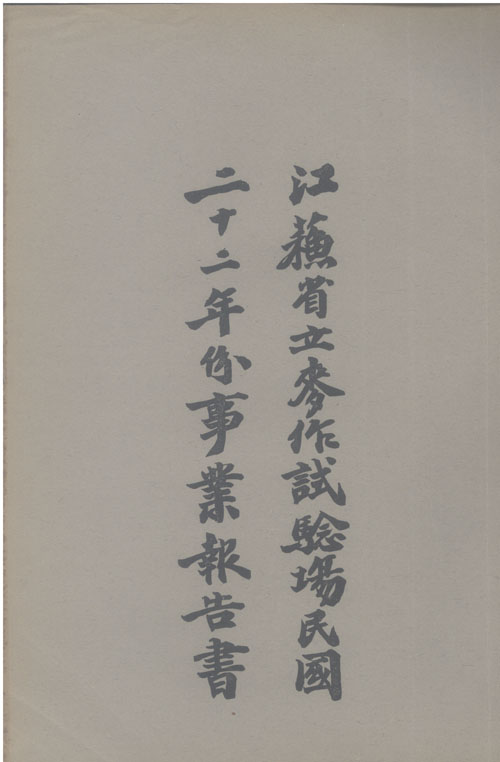 江蘓省立麥作試驗場民國
二十二年份事業報告書